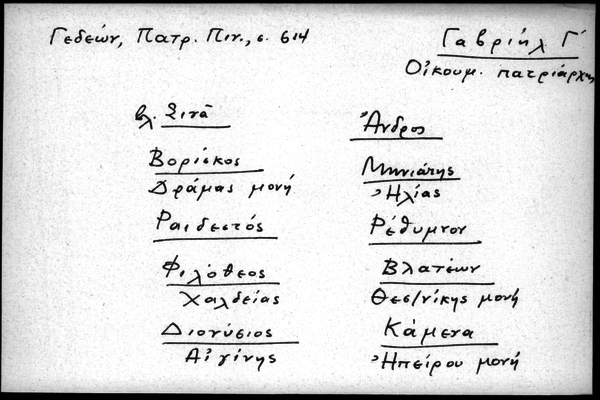 Γεδεών, Πατρ. Πιν., σ. 614
Γαβριήλ Γ΄
Οἰκουμ. πατριάρχης
βλ. Σινᾶ
Βορίσκος
Δράμας μονή
Ραιδεστός
Φιλόθεος
Χαλδείας
Διονύσιος
Αἰγίνης
Ἄνδρος
Μηνιάτης
Ἠλίας
Ρέθυμνον
Βλατέων
Θεσ/νίκης μονή
Κάμενα
Ἠπείρου μονή